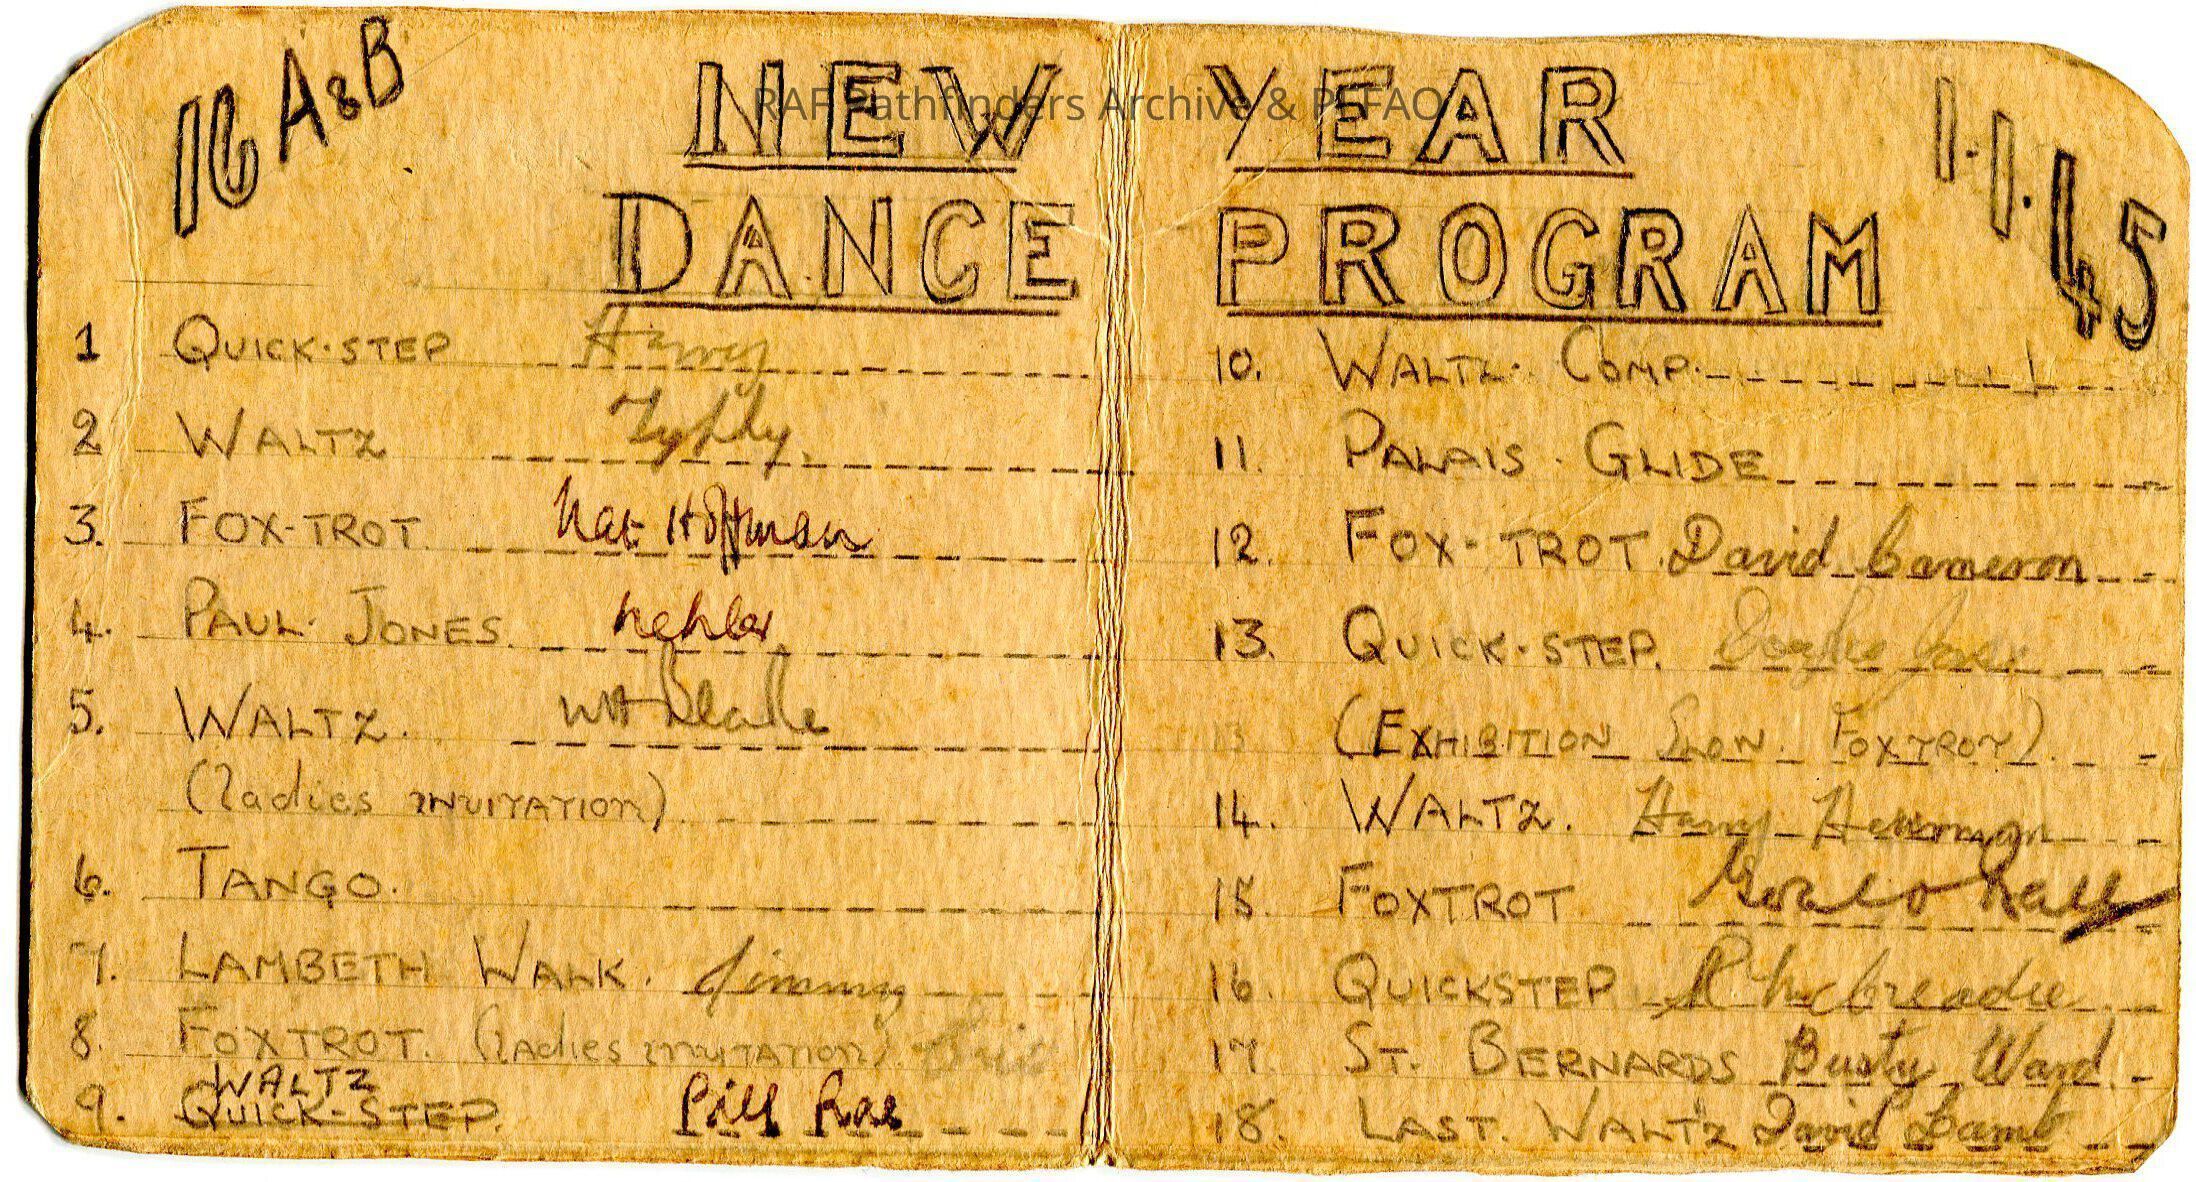 16 A & B
NEW YEAR
DANCE PROGRAM
1.1.45
RAF Pathfinders Archive & PFFAO
1 QUICK-STEP Harvey
2 WALTZ
3. FOX-TROT Nat Hoffman
4. PAUL JONES.
5. WALTZ.
(Ladies INVITATION)
6. TANGO.
7. LAMBETH WALK. Jimmy
8. FOXTROT. (Ladies INVITATION).
WALTZ
9. QUICK-STEP. Bill Rae
10. WALTZ. COMP.
11. PALAIS. GLIDE
12. FOX-TROT. David Cameron
13. QUICK-STEP.
13 (EXHIBITION SLOW. FOXTROT).
14. WALTZ. Harry
15. FOXTROT
16. QUICKSTEP R McCreadie
17. ST. BERNARDS Busty Ward
18. LAST. WALTZ David Lamb